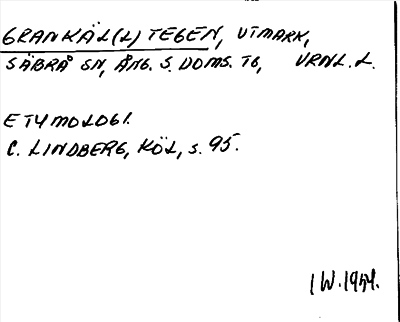 GRANKÄL(L)TEGEN, UTMARK,
SÄBRÅ SN, ÅNG. S. DOMS. TG, VRNL. L.
ETYMOLOGI.
C. LINDBERG, KÖL, s. 95.
I W. 1954.